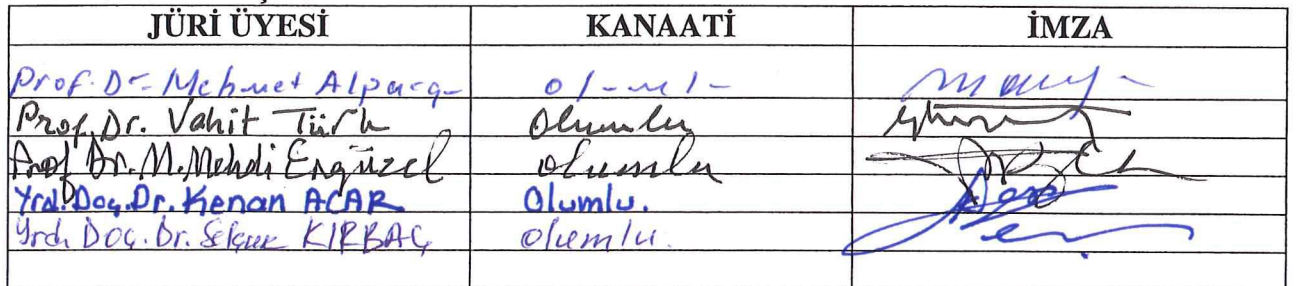 JÜRİ ÜYESİ KANAATİ İMZA
Prof. Dr. Mehmet Alparg olumlu
Prof. Dr. Vahit Türk Olumlu
Prof Dr. M. Mehdi Ergüzel olumlu
Yrd. Doç. Dr. Kenan ACAR Olumlu.
Yrd. Doç. Dr. Selçuk KIRBAÇ Olumlu.